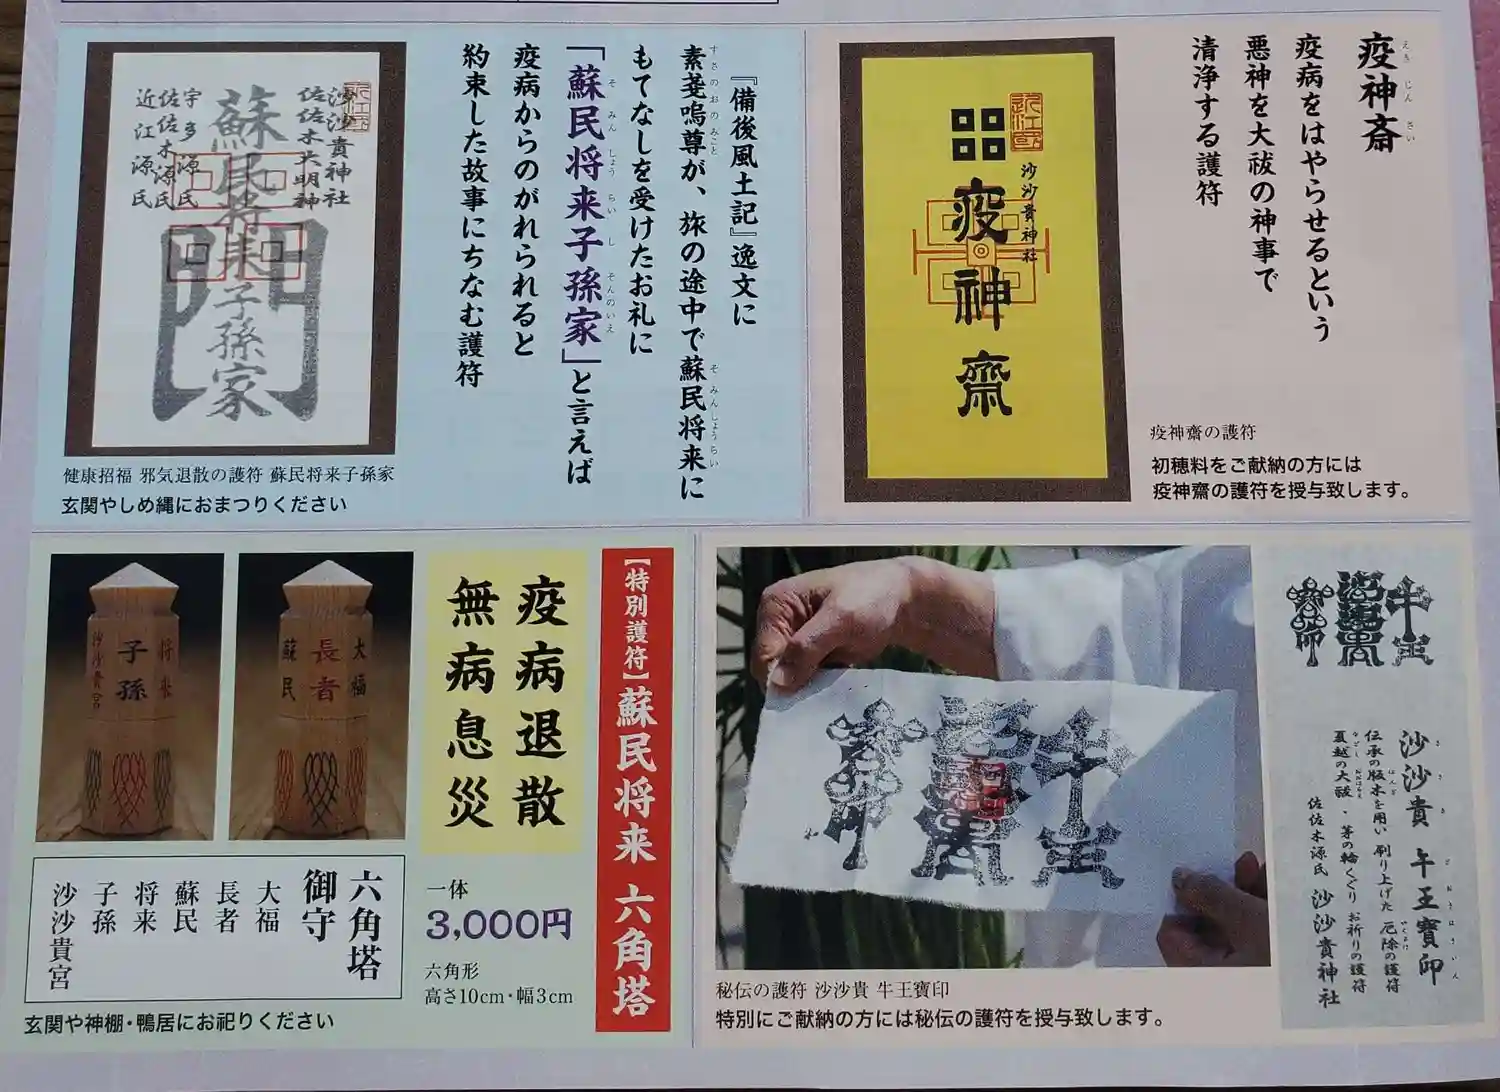 疫神斎
えきじんさい
疫病をはやらせるという
悪神を大祓の神事で
清浄する護符
近江國
沙沙貴神社
疫神齋
疫神齋の護符
初穂料をご献納の方には
疫神齋の護符を授与致します。
『備後風土記』逸文に
素戔嗚尊が、旅の途中で蘇民将来に
すさのおのみこと
そみんしょうらい
もてなしを受けたお礼に
「蘇民将来子孫家」と言えば
そみんしょうらいしそんのいえ
疫病からのがれられると
約束した故事にちなむ護符
沙沙貴神社
佐佐木大明神
蘇民将来子孫家
門
宇多源氏
佐佐木源氏
近江源氏
健康招福 邪気退散の護符 蘇民将来子孫家
玄関やしめ縄におまつりください
【特別護符】蘇民将来 六角塔
疫病退散
無病息災
将来
子孫
沙沙貴宮
大福
長者
蘇民
一体
3,000円
六角形
高さ10cm・幅3cm
六角塔
御守
大福
長者
蘇民
将来
子孫
沙沙貴宮
玄関や神棚・鴨居にお祀りください
秘伝の護符 沙沙貴 牛王寶印
特別にご献納の方には秘伝の護符を授与致します。
沙沙貴 牛王寶印
伝承の版木を用い 刷り上げた 厄除の護符
夏越の大祓、茅の輪くぐり お祈りの護符
佐佐木源氏 沙沙貴神社